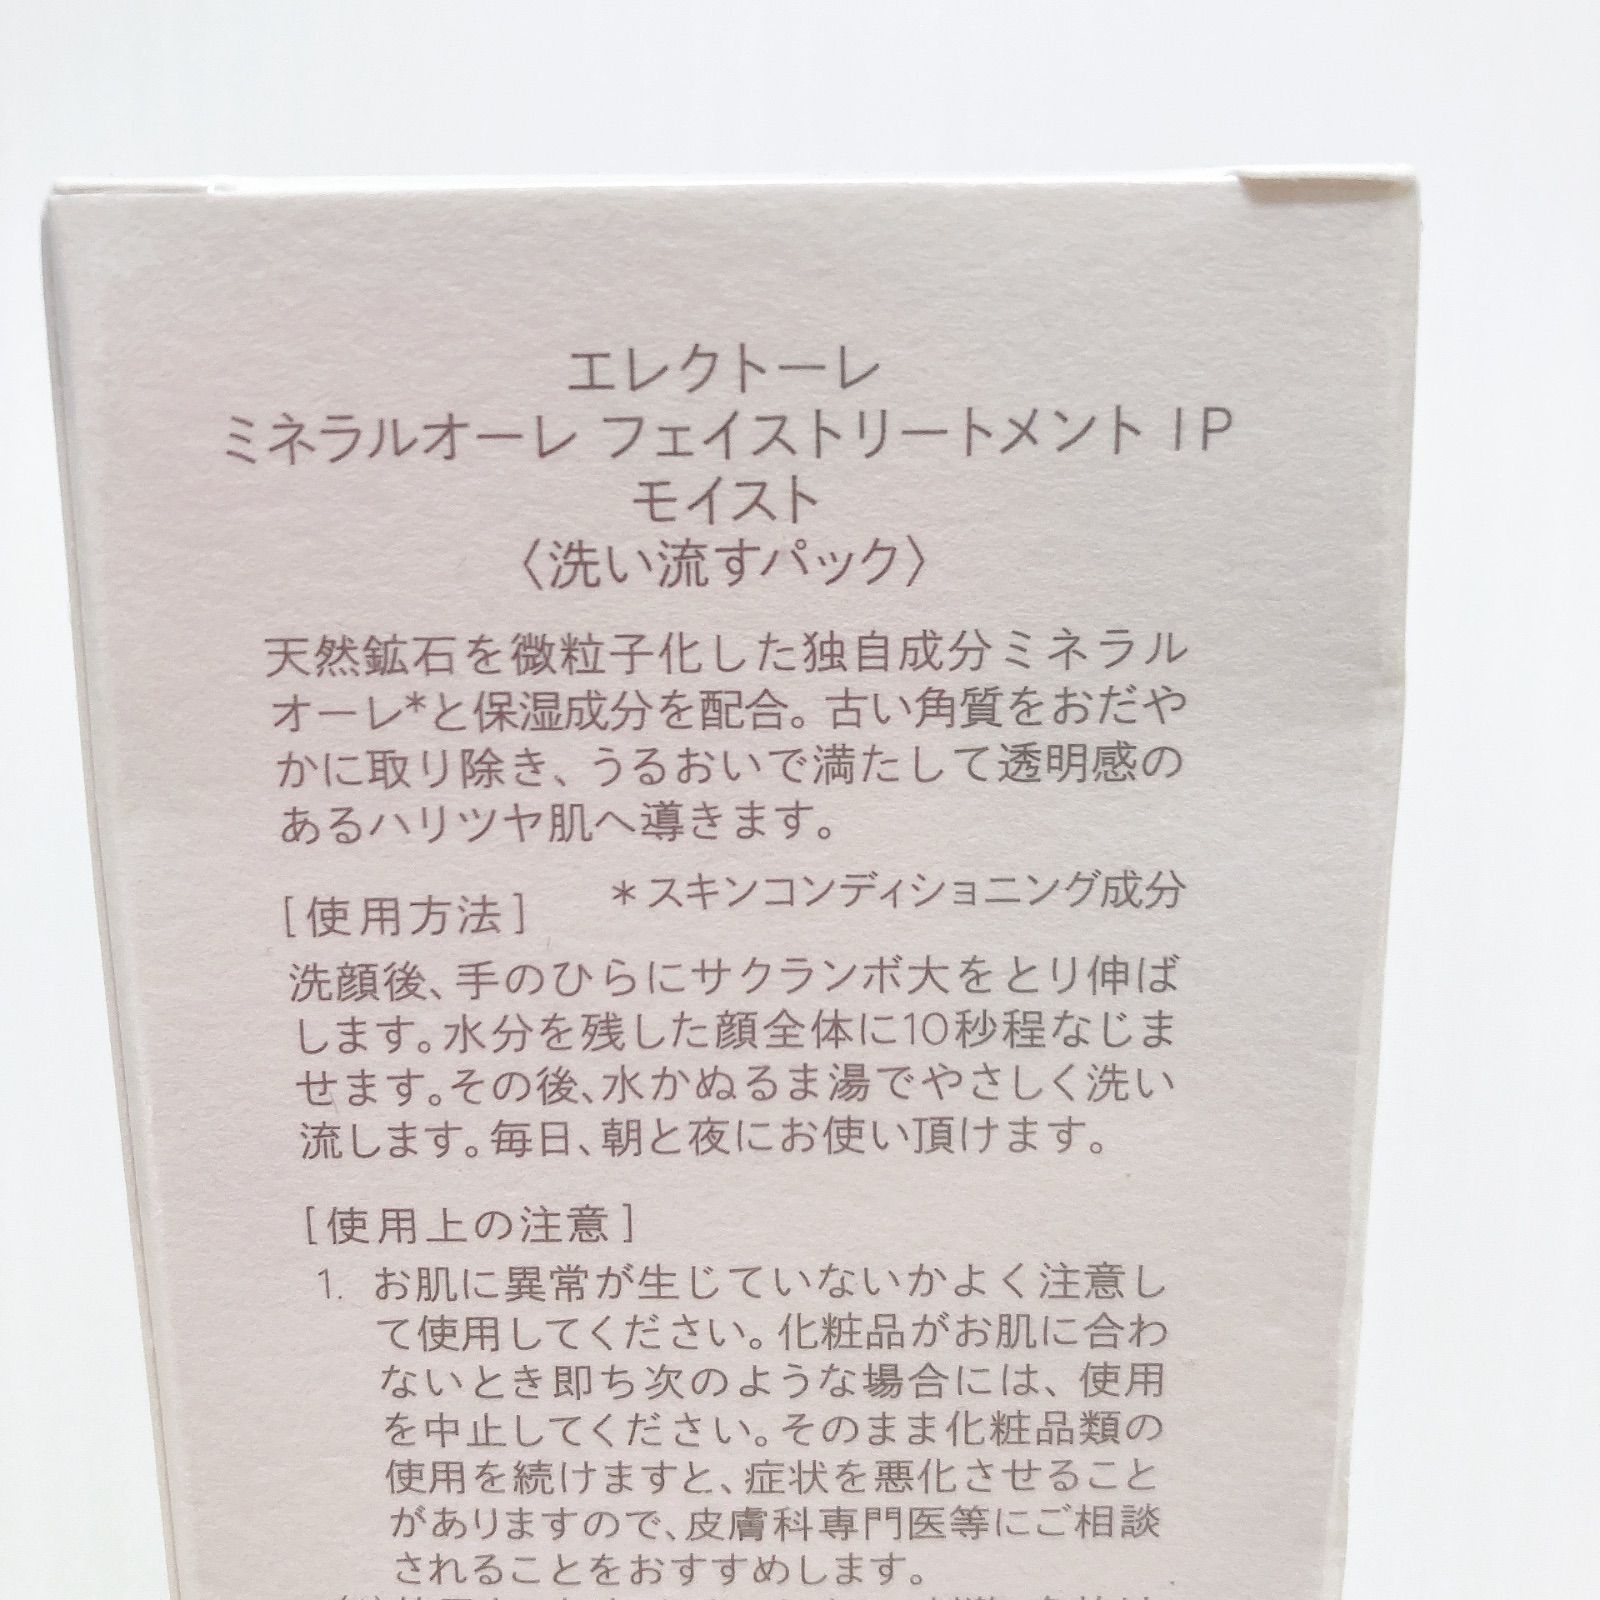 エレクトーレ
ミネラルオーレ フェイストリートメント IP
モイスト
〈洗い流すパック〉
天然鉱石を微粒子化した独自成分ミネラル
オーレ*と保湿成分を配合。古い角質をおだや
かに取り除き、うるおいで満たして透明感の
あるハリツヤ肌へ導きます。
*スキンコンディショニング成分
[使用方法]
洗顔後、手のひらにサクランボ大をとり伸ば
します。水分を残した顔全体に10秒程なじま
せます。その後、水かぬるま湯でやさしく洗い
流します。毎日、朝と夜にお使い頂けます。
[使用上の注意]
1. お肌に異常が生じていないかよく注意し
て使用してください。化粧品がお肌に合わ
ないとき即ち次のような場合には、使用
を中止してください。そのまま化粧品類の
使用を続けますと、症状を悪化させること
がありますので、皮膚科専門医等にご相談
されることをおすすめします。